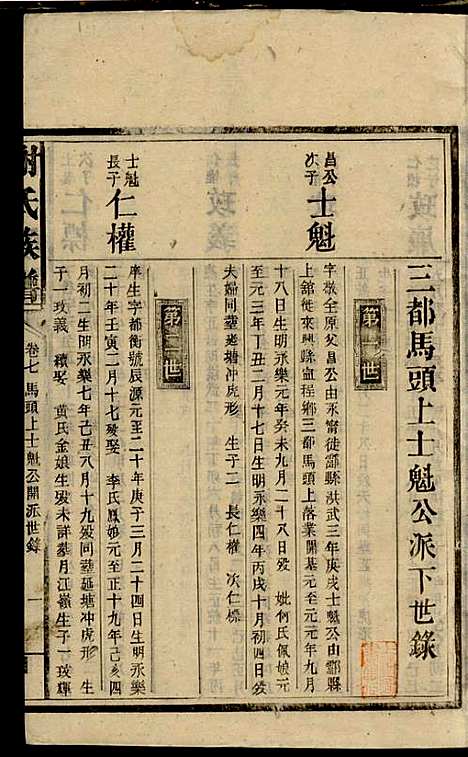 三都馬頭上士魁公派下世錄
第一世
昌公次子
士魁
字敬全原父昌公由永甯徒酃縣洪武三年庚戌士魁公由酃縣
上舘徙來興縣宜程鄉三都馬頭上落業開基元至元元年九月
十八日生明永樂元年癸未九月二十八日歿 妣何氏佩娘元
至元三年丁丑二月十七日生明永樂四年丙戌十月初四日歿
夫婦同塟老塘冲虎形 生子二 長仁權 次仁標
第二世
士魁長子
仁權
庠生字都衡號辰源元至二十年庚子三月二十四日生明永樂
二十年壬寅二月十七歿娶 李氏鳳娘元至正十九年己亥四
月初二生明永樂七年己丑八月十九歿同塟延塘冲虎形 生
子一玫義 續娶 黄氏金娘生歿未詳墓月江嶺生子一玫輝
謝氏族譜
卷七 馬頭上士魁公開派世錄
一